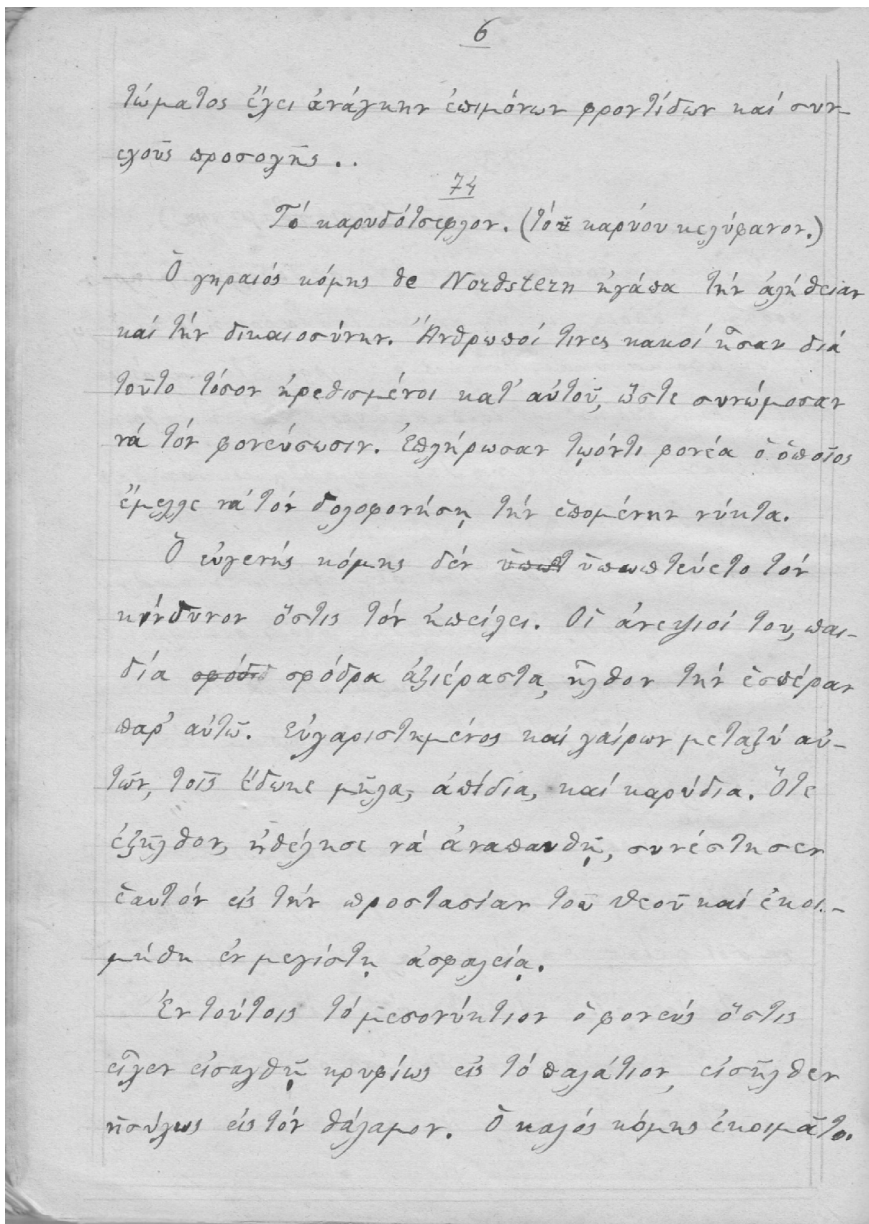 6
τώματος ἔχει ἀνάγκην ἐπιμόνων φροντίδων καί συν-
εχοῦς προσοχῆς..
74
Τό καρυδότσεφλον. (τοῦ καρύου κελύφανον.)
Ὁ γηραιός κόμης de Nordstern ἠγάπα τήν ἀλήθειαν
καί τήν δικαιοσύνην. Ἄνθρωποί τινες κακοί ἦσαν διά
τοῦτο τόσον ἠρεθισμένοι κατ' αὐτοῦ, ὥστε συνώμοσαν
νά τόν φονεύσωσιν. Ἐπλήρωσαν τῳόντι φονέα ὁ ὁποῖος
ἔμελλε νά τόν δολοφονήσῃ τήν ἑπομένην νύκτα.
Ὁ εὐγενής κόμης δέν ὑπωπτεύετο τόν
κίνδυνον ὅστις τόν ἠπείλει. Οἱ ἀνεψιοί του, παι-
δία σφόδρα ἀξιέραστα, ἦλθον τήν ἑσπέραν
παρ' αὐτῷ. Εὐχαριστημένος καί χαίρων μεταξύ αὐ-
τῶν, τοῖς ἔδωκε μῆλα, ἀπίδια, καί καρύδια. Ὅτε
ἐξῆλθον, ἠθέλησε νά ἀναπαυθῇ, συνέστησεν
ἑαυτόν εἰς τήν προστασίαν τοῦ θεοῦ καί ἐκοι-
μήθη ἐν μεγίστῃ ἀσφαλείᾳ.
Ἐντούτοις τό μεσονύκτιον ὁ φονεύς ὅστις
εἶχεν εἰσαχθῇ κρυφίως εἰς τό παλάτιον, εἰσῆλθεν
ἡσύχως εἰς τόν θάλαμον. Ὁ καλός κόμης ἐκοιμᾶτο.